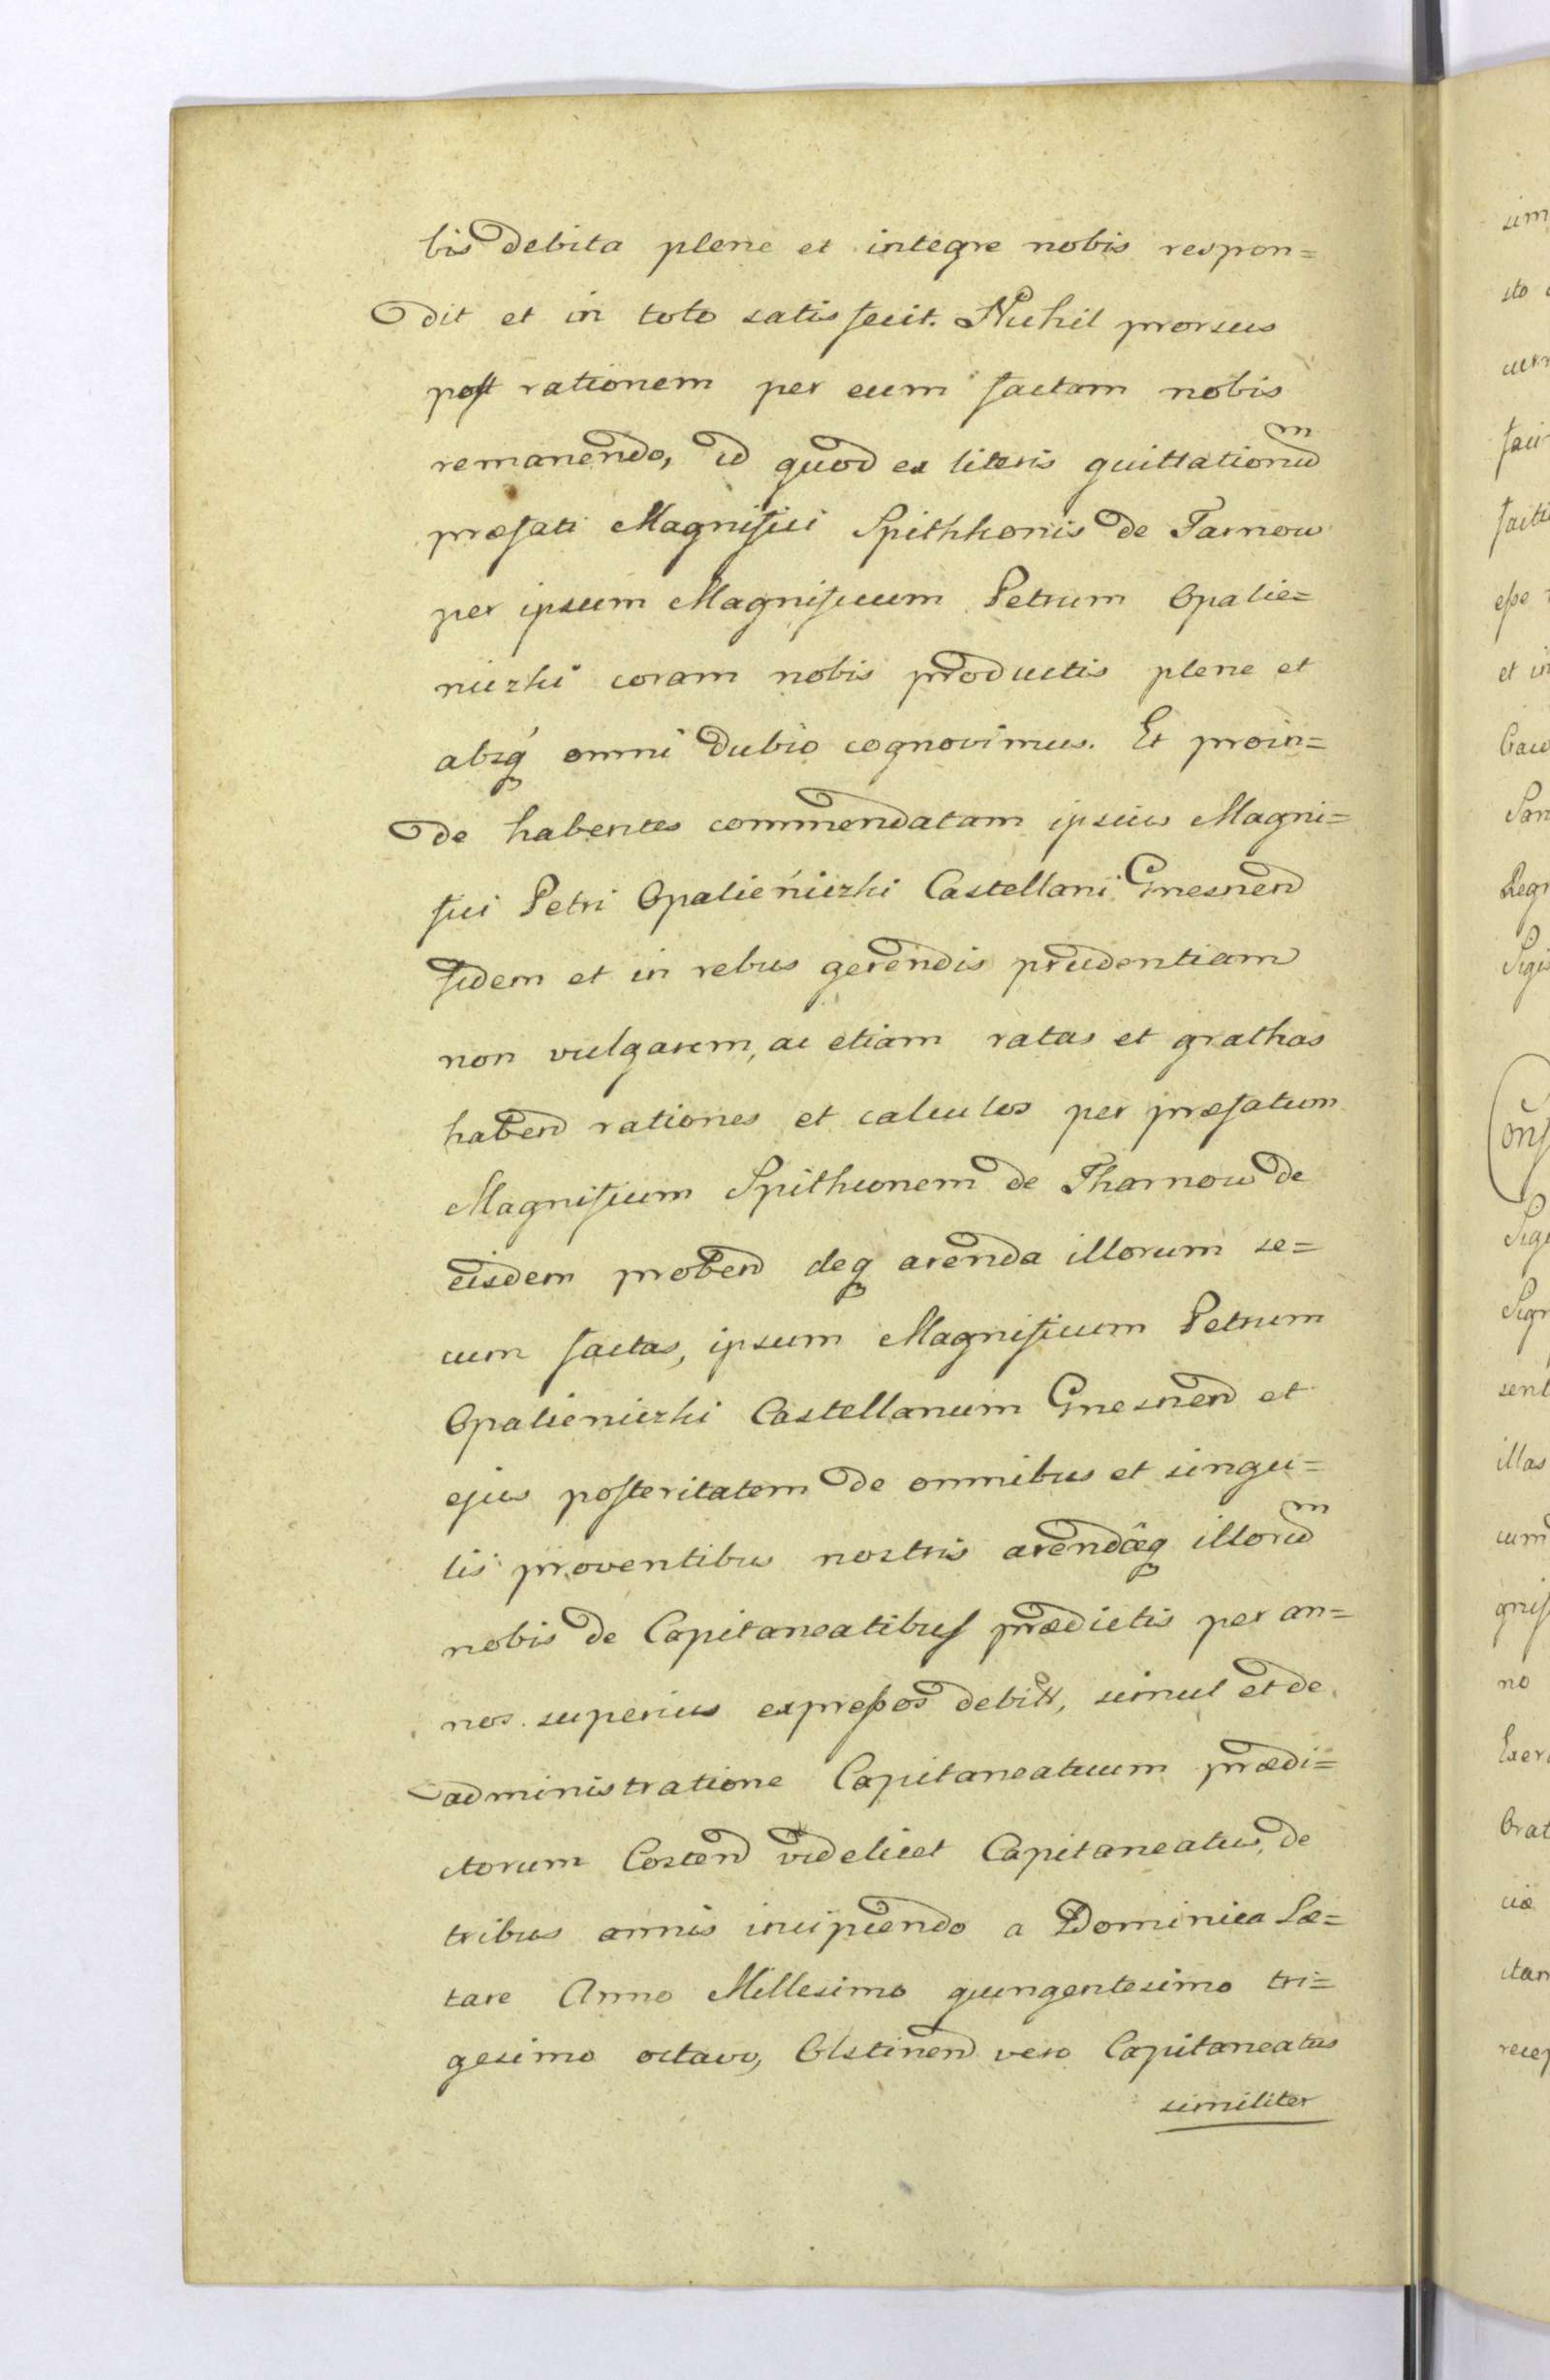 bis debita plene et integre nobis respon=
dit et in toto satis fecit. Nichil prorsus
post rationem per eum factam nobis
remanendo, id quod ex literis quittationum
præfati Magnifici Spithkonis de Tarnow
per ipsum Magnificum Petrum Opalie=
niczki coram nobis productis plene et
absq omni dubio cognovimus. Et proin=
de habentes commendatam ipsius Magni=
fici Petri Opalieniczki Castellani Gnesnen
fidem et in rebus gerendis prudentiam
non vulgarem, ac etiam ratas et grathas
haben rationes et calculos per præfatum
Magnificum Spithconem de Tharnow de
eisdem proben deq arenda illorum se=
cum factas, ipsum Magnificum Petrum
Opalieniczki Castellanum Gnesnen et
ejus posteritatem de omnibus et singu=
lis proventibus nostris arendæq illorum
nobis de Capitaneatibus prædictis per an=
nos superius expressos debitt, simul et de
administratione Capitaneatuum prædi=
ctorum Costen videlicet Capitaneatus, de
tribus annis incipiendo a Dominica Læ=
tare Anno Millesimo quingentesimo tri=
gesimo octavo, Olstinen vero Capitaneatus
similiter
sim
sto
faci
esse
et in
Regn
sent
illas
cum
no
ciæ
recep